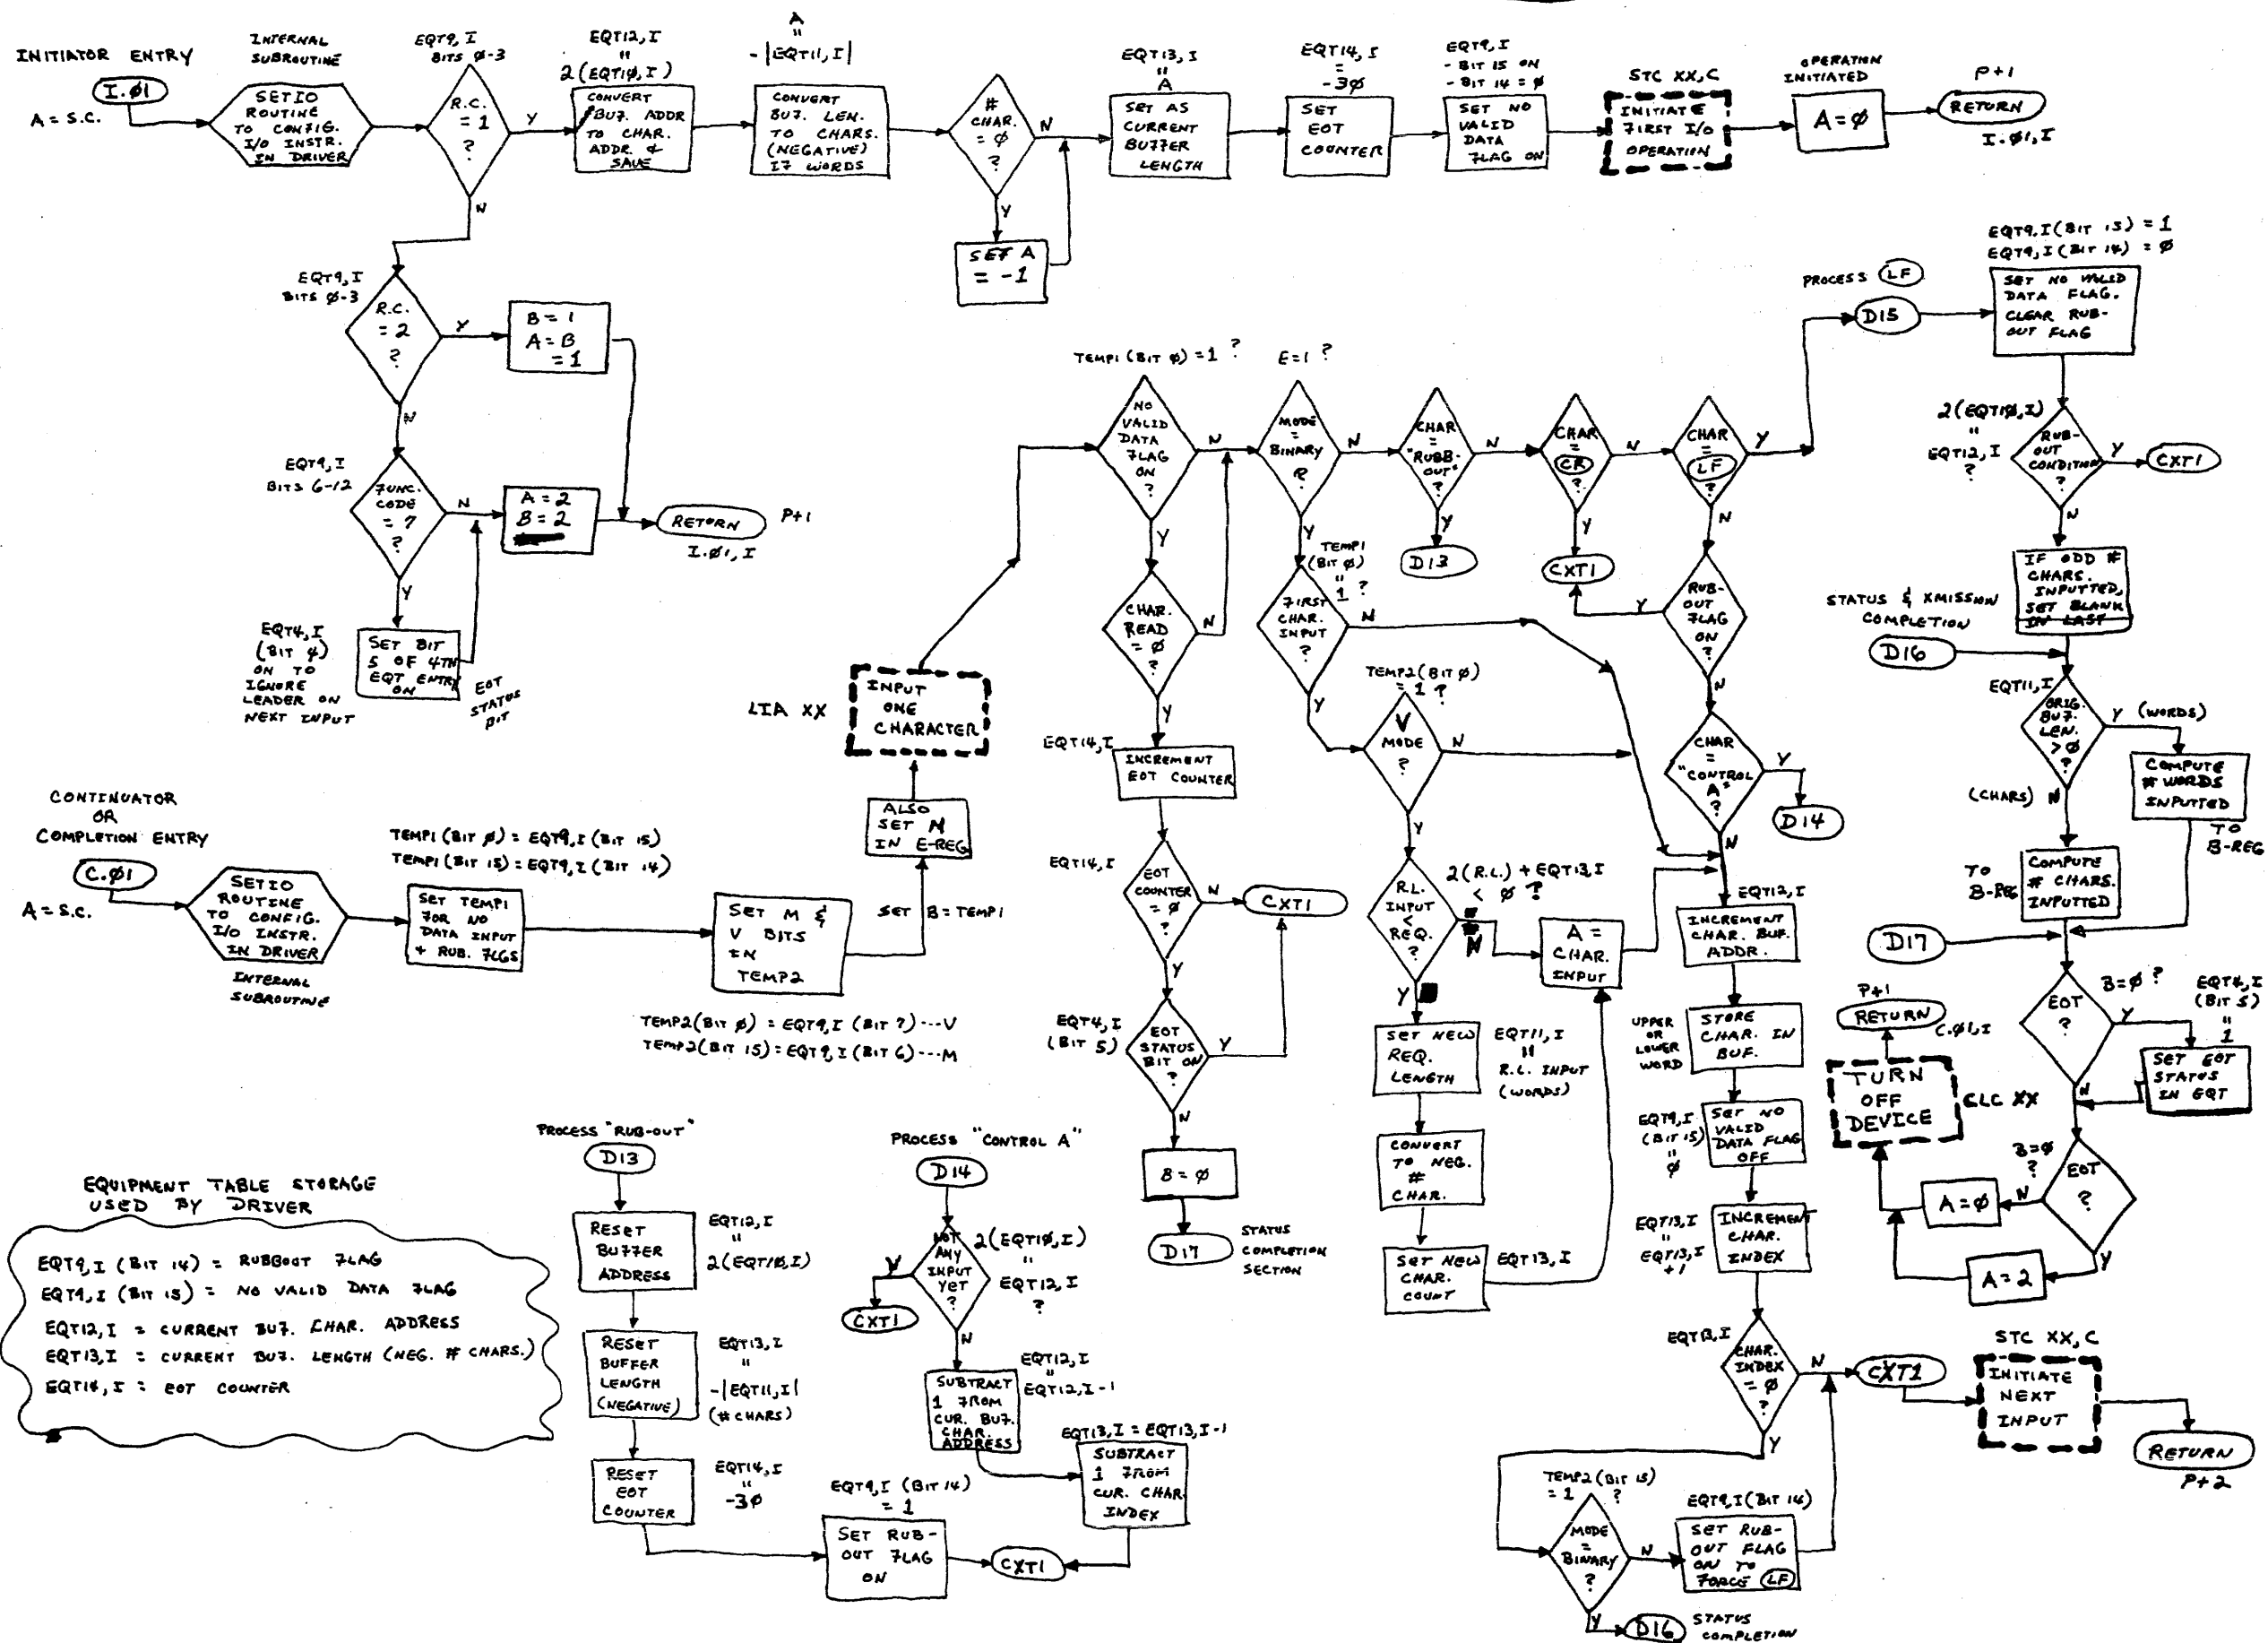 INITIATOR ENTRY
I.Ø1
A = S.C.
INTERNAL
SUBROUTINE
SETIO
ROUTINE
TO CONFIG.
I/O INSTR.
IN DRIVER
EQT9,I
BITS Ø-3
R.C.
= 1
?
Y
N
EQT12,I
"
2(EQT1Ø,I)
CONVERT
BUF. ADDR
TO CHAR.
ADDR. &
SAVE
A
"
-|EQT11,I|
CONVERT
BUF. LEN.
TO CHARS.
(NEGATIVE)
IF WORDS
#
CHAR.
= Ø
?
N
Y
SET A
= -1
EQT13,I
"
A
SET AS
CURRENT
BUFFER
LENGTH
EQT14,I
=
-3Ø
SET
EOT
COUNTER
EQT9,I
- BIT 15 ON
- BIT 14 = Ø
SET NO
VALID
DATA
FLAG ON
STC XX,C
INITIATE
FIRST I/O
OPERATION
OPERATION
INITIATED
A = Ø
P+1
RETURN
I.Ø1,I
EQT9,I
BITS Ø-3
R.C.
= 2
?
Y
N
B = 1
A = B
= 1
EQT9,I
BITS 6-12
FUNC.
CODE
= 7
?
N
Y
A = 2
B = 2
RETURN
P+1
I.Ø1,I
EQT4,I
(BIT 4)
ON TO
IGNORE
LEADER ON
NEXT INPUT
SET BIT
5 OF 4TH
EQT ENTRY
ON
EOT
STATUS
BIT
CONTINUATOR
OR
COMPLETION ENTRY
C.Ø1
A = S.C.
SETIO
ROUTINE
TO CONFIG.
I/O INSTR.
IN DRIVER
INTERNAL
SUBROUTINE
TEMP1 (BIT Ø) = EQT9,I (BIT 15)
TEMP1 (BIT 15) = EQT9,I (BIT 14)
SET TEMP1
FOR NO
DATA INPUT
+ RUB. FLGS
SET M &
V BITS
IN
TEMP2
TEMP2(BIT Ø) = EQT9,I (BIT 7)---V
TEMP2(BIT 15) = EQT9,I (BIT 6)---M
SET B = TEMP1
ALSO
SET M
IN E-REG
LIA XX
INPUT
ONE
CHARACTER
TEMP1 (BIT Ø) = 1 ?
NO
VALID
DATA
FLAG
ON
?
N
Y
CHAR.
READ
= Ø
?
N
Y
EQT14,I
INCREMENT
EOT COUNTER
EQT14,I
EOT
COUNTER
= Ø
?
N
CXT1
Y
EQT4,I
(BIT 5)
EOT
STATUS
BIT ON
?
Y
N
B = Ø
D17
STATUS
COMPLETION
SECTION
E=1 ?
MODE
=
BINARY
?
N
Y
TEMP1
(BIT Ø)
"
1 ?
FIRST
CHAR.
INPUT
?
N
Y
TEMP2(BIT Ø)
= 1 ?
V
MODE
?
N
Y
2(R.L.) + EQT13,I
< Ø ?
R.L.
INPUT
<
REQ.
?
N
Y
A =
CHAR.
INPUT
SET NEW
REQ.
LENGTH
EQT11,I
"
R.L. INPUT
(WORDS)
CONVERT
TO NEG.
#
CHAR.
SET NEW
CHAR.
COUNT
EQT13,I
CHAR
=
"RUBB-
OUT"
?
N
Y
D13
CHAR
=
CR
?
N
Y
CXT1
CHAR
=
LF
?
Y
N
RUB-
OUT
FLAG
ON
?
Y
N
CHAR
=
"CONTROL
A"
?
Y
D14
N
EQT12,I
INCREMENT
CHAR. BUF.
ADDR.
UPPER
OR
LOWER
WORD
STORE
CHAR. IN
BUF.
EQT9,I
(BIT 15)
"
Ø
SET NO
VALID
DATA FLAG
OFF
EQT13,I
"
EQT13,I
+1
INCREMENT
CHAR.
INDEX
EQT13,I
CHAR.
INDEX
= Ø
?
N
Y
CXT1
STC XX,C
INITIATE
NEXT
INPUT
RETURN
P+2
TEMP2(BIT 15)
= 1 ?
MODE
=
BINARY
?
N
Y
EQT9,I(BIT 14)
SET RUB-
OUT FLAG
ON TO
FORCE LF
D16
STATUS
COMPLETION
PROCESS LF
D15
EQT9,I(BIT 15) = 1
EQT9,I(BIT 14) = Ø
SET NO VALID
DATA FLAG.
CLEAR RUB-
OUT FLAG
2(EQT1Ø,I)
"
EQT12,I
?
RUB-
OUT
CONDITION
?
Y
CXT1
N
IF ODD #
CHARS.
INPUTTED,
SET BLANK
IN LAST
STATUS & XMISSION
COMPLETION
D16
EQT11,I
ORIG.
BUF.
LEN.
> Ø
?
Y (WORDS)
COMPUTE
# WORDS
INPUTTED
TO
B-REG
(CHARS) N
TO
B-REG
COMPUTE
# CHARS.
INPUTTED
D17
B=Ø ?
EOT
?
Y
N
EQT4,I
(BIT 5)
"
1
SET EOT
STATUS
IN EQT
B=Ø
?
EOT
?
N
Y
A=Ø
A=2
P+1
RETURN
C.Ø1,I
TURN
OFF
DEVICE
CLC XX
PROCESS "RUB-OUT"
D13
RESET
BUFFER
ADDRESS
EQT12,I
"
2(EQT1Ø,I)
RESET
BUFFER
LENGTH
(NEGATIVE)
EQT13,I
"
-|EQT11,I|
(# CHARS)
RESET
EOT
COUNTER
EQT14,I
"
-3Ø
EQT9,I (BIT 14)
= 1
SET RUB-
OUT FLAG
ON
CXT1
PROCESS "CONTROL A"
D14
NOT
ANY
INPUT
YET
?
2(EQT1Ø,I)
"
EQT12,I
?
Y
CXT1
N
SUBTRACT
1 FROM
CUR. BUF.
CHAR.
ADDRESS
EQT12,I
"
EQT12,I-1
EQT13,I = EQT13,I-1
SUBTRACT
1 FROM
CUR. CHAR
INDEX
EQUIPMENT TABLE STORAGE
USED BY DRIVER
EQT9,I (BIT 14) = RUBBOUT FLAG
EQT9,I (BIT 15) = NO VALID DATA FLAG
EQT12,I = CURRENT BUF. CHAR. ADDRESS
EQT13,I = CURRENT BUF. LENGTH (NEG. # CHARS.)
EQT14,I = EOT COUNTER